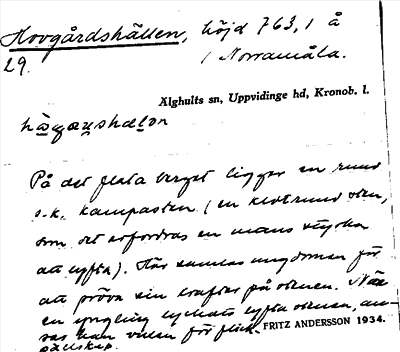 Hovgårdshällen, höjd 763,1 å
29. / Norramåla.
Älghults sn, Uppvidinge hd, Kronob. l.
På det flata berget ligger en rund
s.k. kampasten (en klotrund sten,
som det erfordras en mans styrka
att lyfta). Här samlas ungdomen för
att pröva sin krafter på stenen. När
en yngling lyckats lyfta stenen, an-
ses han vuxen för flick-
sällskap.
FRITZ ANDERSSON 1934.